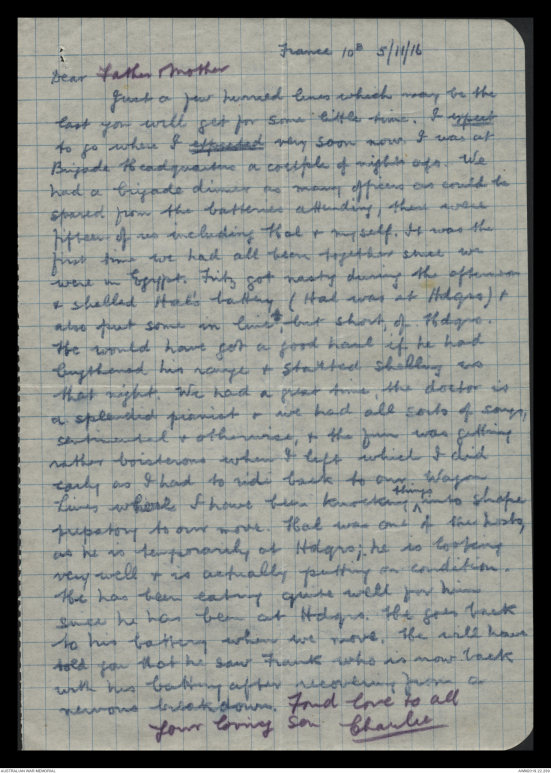 France 10B 5/11/16
Dear Father & Mother
Just a few hurried lines which may be the
last you will get for some little time. I expect
to go where I expected very soon now. I was at
Brigade Headquarters a couple of nights ago. We
had a brigade dinner as many officers as could be
spared from the batteries attending, there were
fifteen of us including Hal & myself. It was the
first time we had all been together since we
were in Egypt. Fritz got nasty during the afternoon
& shelled Hal's battery (Hal was at Hdqrs) &
also put some in line, but short, of Hdqrs.
He would have got a good haul if he had
lengthened his range & started shelling us
that night. We had a great time, the doctor is
a splendid pianist & we had all sorts of songs,
sentimental & otherwise, & the fun was getting
rather boisterous when I left which I did
early as I had to ride back to our Wagon
Lines where I have been knocking things into shape
prepatory to our move. Hal was one of the hosts,
as he is temporarily at Hdqrs; he is looking
very well & is actually putting on condition.
He has been eating quite well for him
since he has been at Hdqrs. He goes back
to his battery when we move. He will have
told you that he saw Frank who is now back
with his battery after recovering from a
nervous breakdown. Fond love to all
Your loving Son Charlie
AUSTRALIAN WAR MEMORIAL